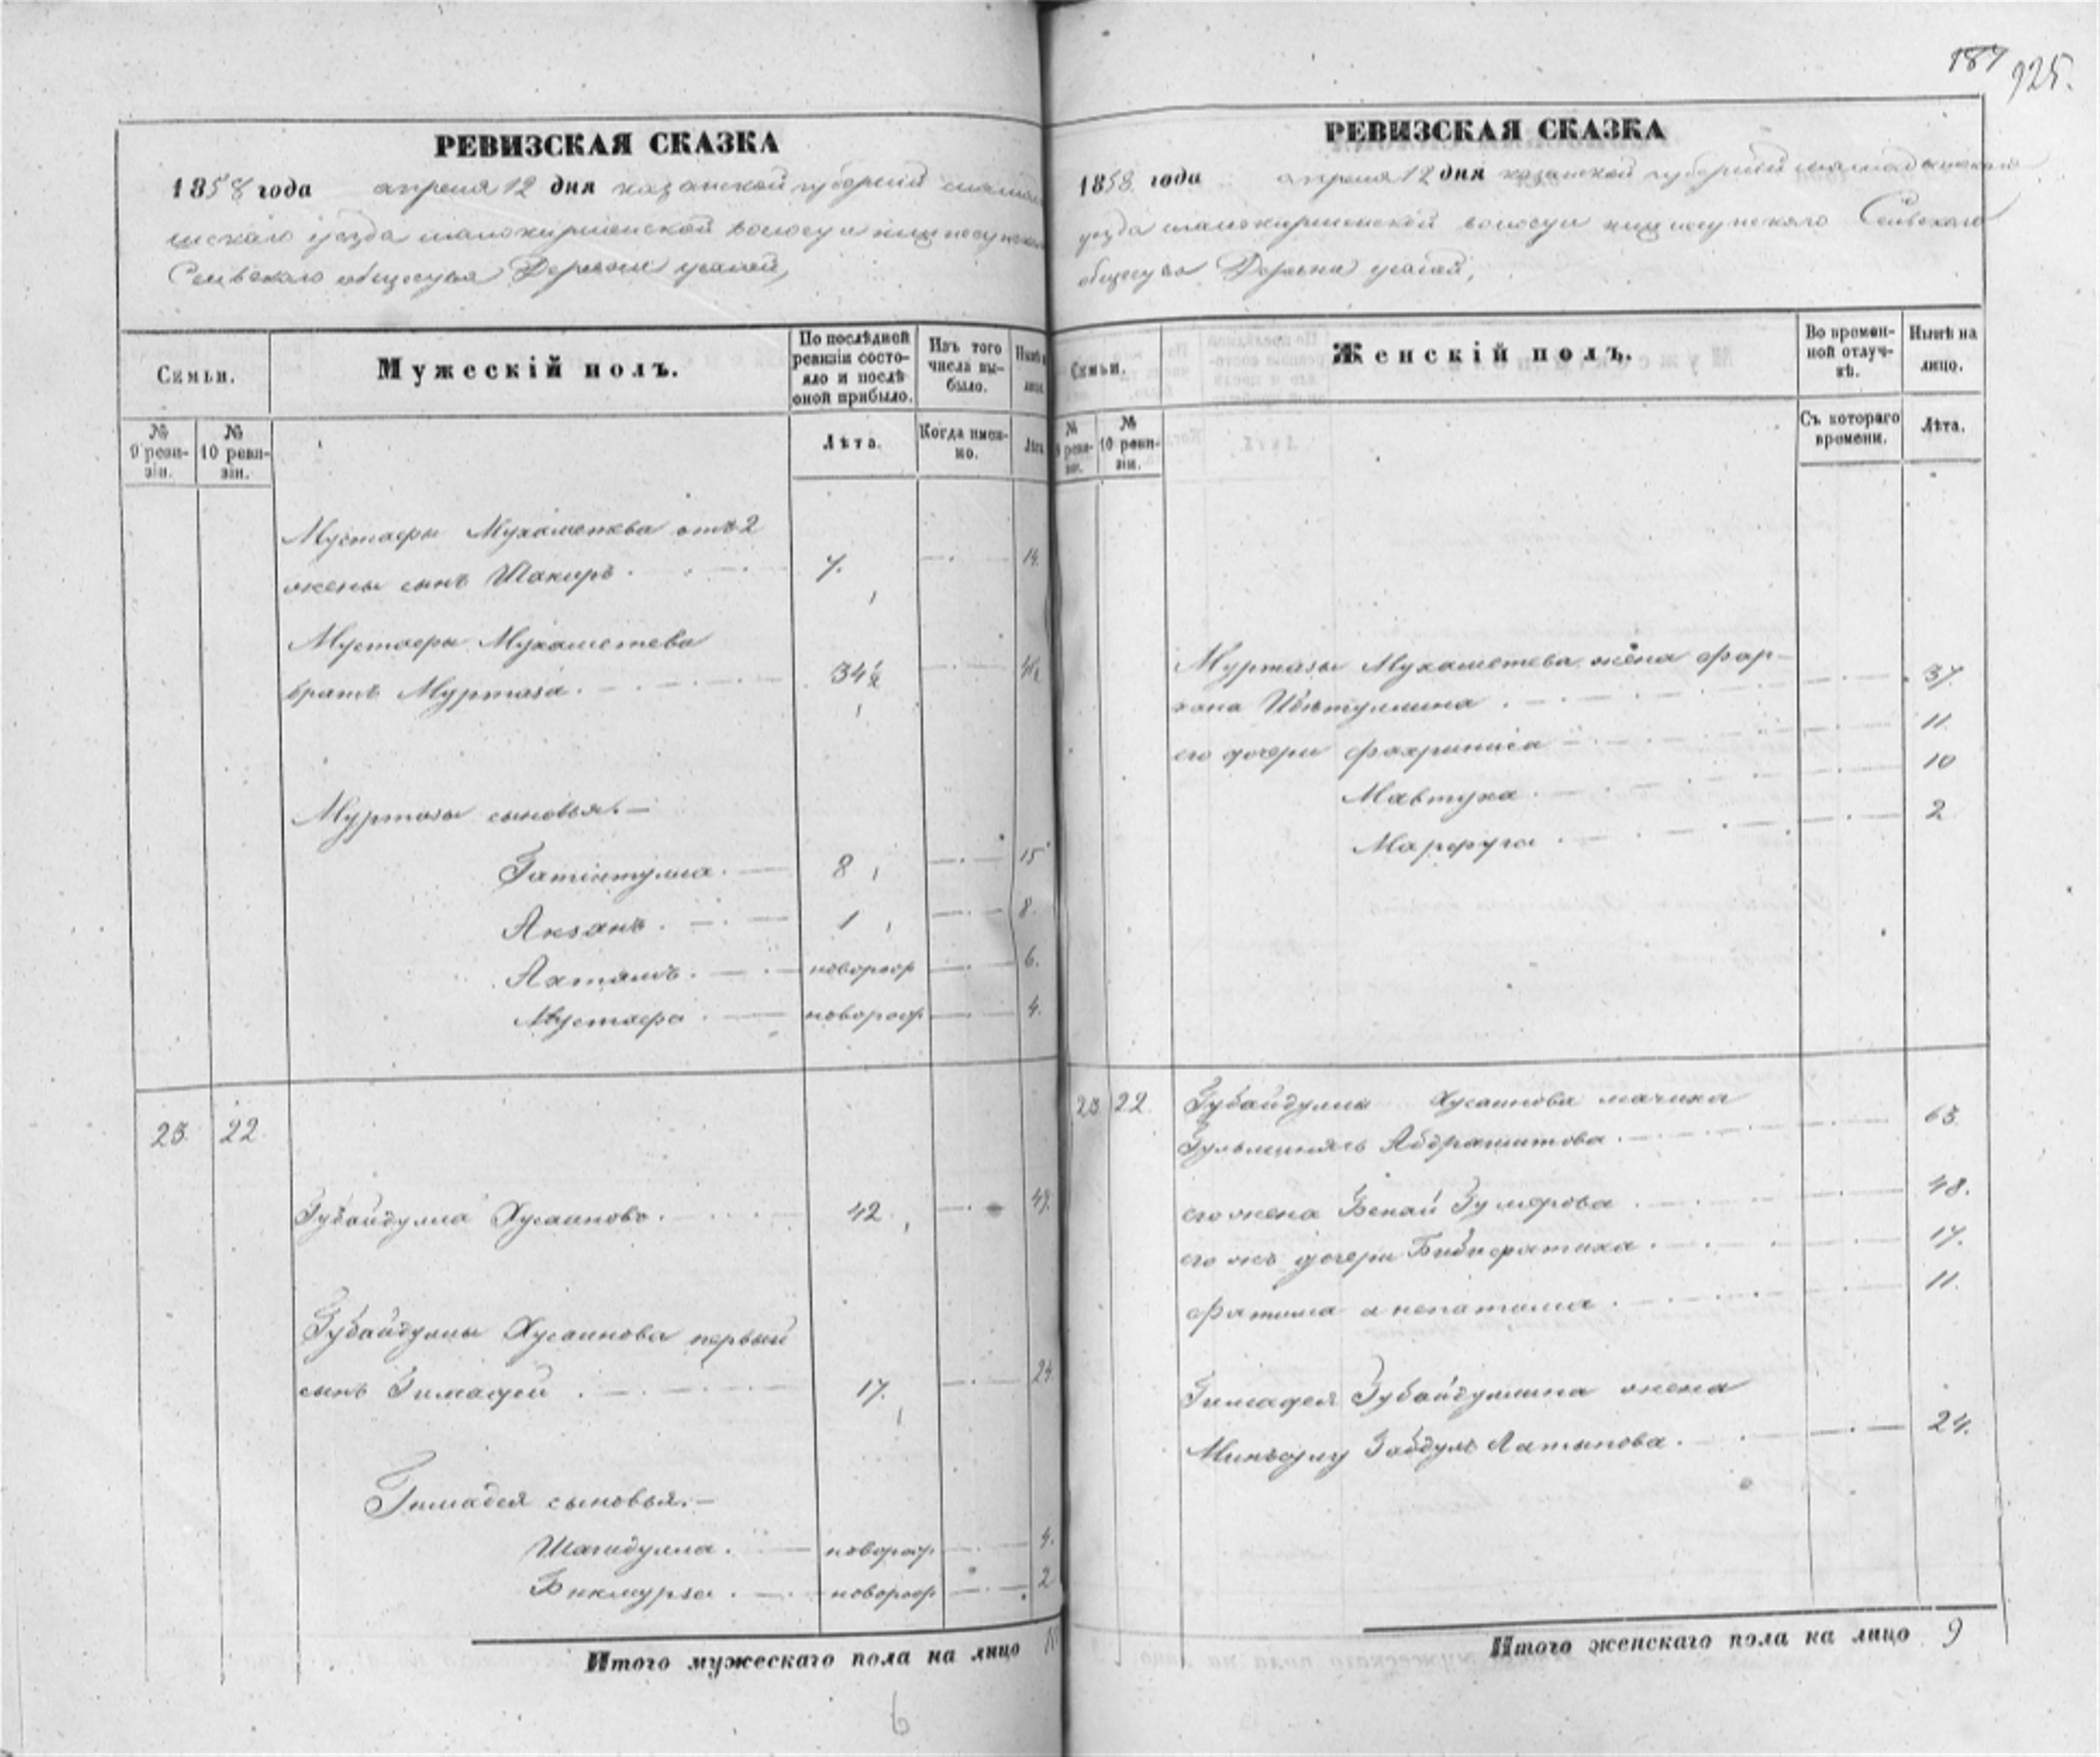 187 925.
РЕВИЗСКАЯ СКАЗКА
1858 года апреля 12 дня казанской губерніи мамад
шскаго уезда волости
Селвскаго общества Деревни
Семьи.
Мужескій полъ.
По послѣдней ревизіи состояло и послѣ оной прибыло.
Изъ того числа выбыло.
№ 9 ревизіи.
№ 10 ревизіи.
Лѣта.
Когда именно.
Мустафы Мухаметева отъ 2
жены сынъ Шакиръ. 7. 14.
Мустафы Мухаметева
братъ Муртаза. 34½ 41½
Муртазы сыновья.—
8 15
Ахзанъ. 1 8.
Ахтямъ. новорож 6.
Мустафа новорож 4.
23 22
Губайдулла Хусаиновъ. 42 49
Губайдуллы Хусаинова первый
сынъ Гимадей 17. 24
Гимадея сыновья.—
Шагидулла. новорож 4.
Бикмурза новорож 2
Итого мужескаго пола на лицо
6
РЕВИЗСКАЯ СКАЗКА
1858 года апреля 12 дня казанской губерніи мамадышскаго
уезда волости Селвскаго
общества Деревни
Семьи.
Женскій полъ.
Во временной отлучкѣ.
Нынѣ на лицо.
№ 9 ревизіи.
№ 10 ревизіи.
Съ котораго времени.
Лѣта.
Муртазы Мухаметева жена Фар-
хана 37.
его дочери Фахриниса 11.
Мавтуха 10
Марфуга 2
23 22 Губайдуллы Хусаинова мачиха
Абдрашитова 63
его жена Бекай Гумерова 48.
его жъ дочери Бибифатиха 17.
Фатима 11.
Гимадея Губайдуллина жена
Габдулъ Латыпова. 24.
Итого женскаго пола на лицо 9